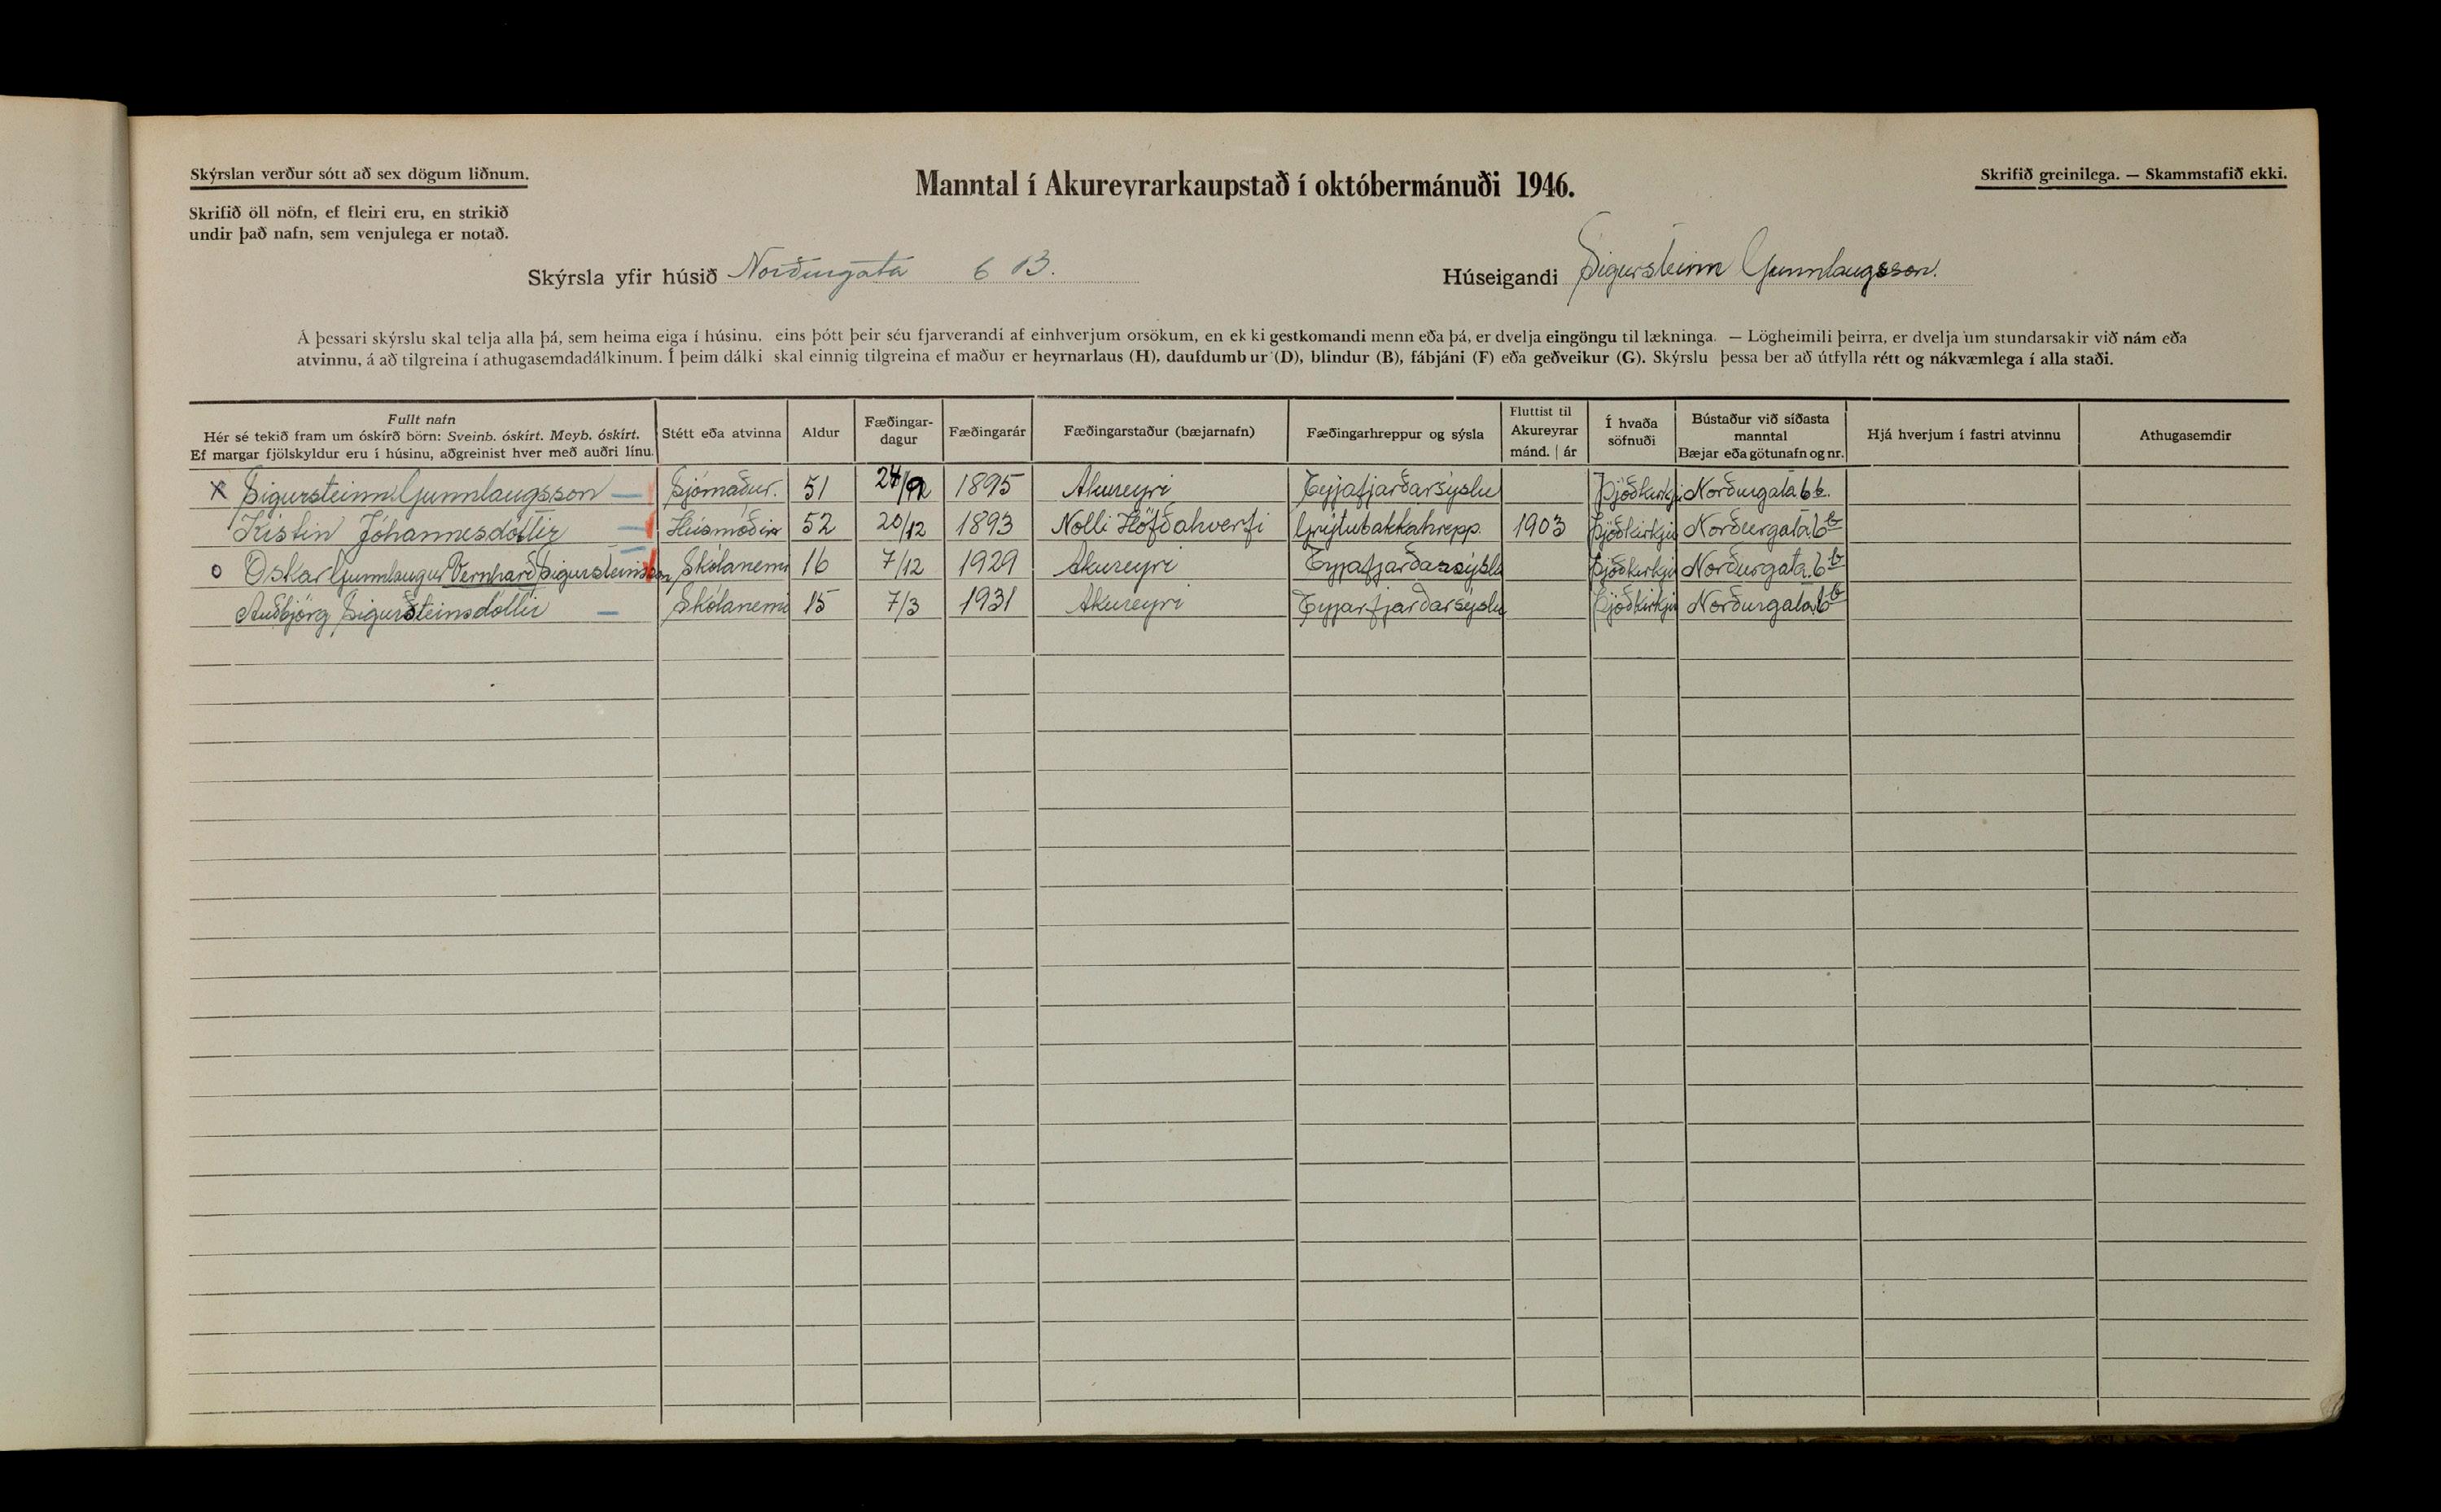 Skýrslan verður sótt að sex dögum liðnum.
Manntal í Akureyrarkaupstað í októbermánuði 1946.
Skrifið greinilega. — Skammstafið ekki.
Skrifið öll nöfn, ef fleiri eru, en strikið
undir það nafn, sem venjulega er notað.
Skýrsla yfir húsið Norðurgata 6 B.
Húseigandi Sigursteinn Gunnlaugsson.
Á þessari skýrslu skal telja alla þá, sem heima eiga í húsinu, eins þótt þeir séu fjarverandi af einhverjum orsökum, en ekki gestkomandi menn eða þá, er dvelja eingöngu til lækninga. — Lögheimili þeirra, er dvelja um stundarsakir við nám eða
atvinnu, á að tilgreina í athugasemdadálkinum. Í þeim dálki skal einnig tilgreina ef maður er heyrnarlaus (H), daufdumbur (D), blindur (B), fábjáni (F) eða geðveikur (G). Skýrslu þessa ber að útfylla rétt og nákvæmlega í alla staði.
Fullt nafn
Hér sé tekið fram um óskírð börn: Sveinb. óskírt. Meyb. óskírt.
Ef margar fjölskyldur eru í húsinu, aðgreinist hver með auðri línu.
Stétt eða atvinna
Aldur
Fæðingar-
dagur
Fæðingarár
Fæðingarstaður (bæjarnafn)
Fæðingarhreppur og sýsla
Fluttist til
Akureyrar
mánd. | ár
Í hvaða
söfnuði
Bústaður við síðasta
manntal
Bæjar eða götunafn og nr.
Hjá hverjum í fastri atvinnu
Athugasemdir
x Sigursteinn Gunnlaugsson — Sjómaður. 51 24/9 1895 Akureyri Eyjafjarðarsýslu Þjóðkirkju Norðurgata 6 b.
Kistin Jóhannesdóttir — Húsmóðir 52 20/12 1893 Nolli Höfðahverfi Grýtubakkahrepp. 1903 Þjóðkirkju Norðurgata 6 b
o Oskar Gunnlaugur Vernharð Sigursteinsson Skólanemi 16 7/12 1929 Akureyri Eyjafjarðarsýslu Þjóðkirkju Norðurgata 6 b
Auðbjörg Sigursteinsdóttir — Skólanemi 15 7/3 1931 Akureyri Eyjarfjarðarsýslu Þjóðkirkju Norðurgata 6 b